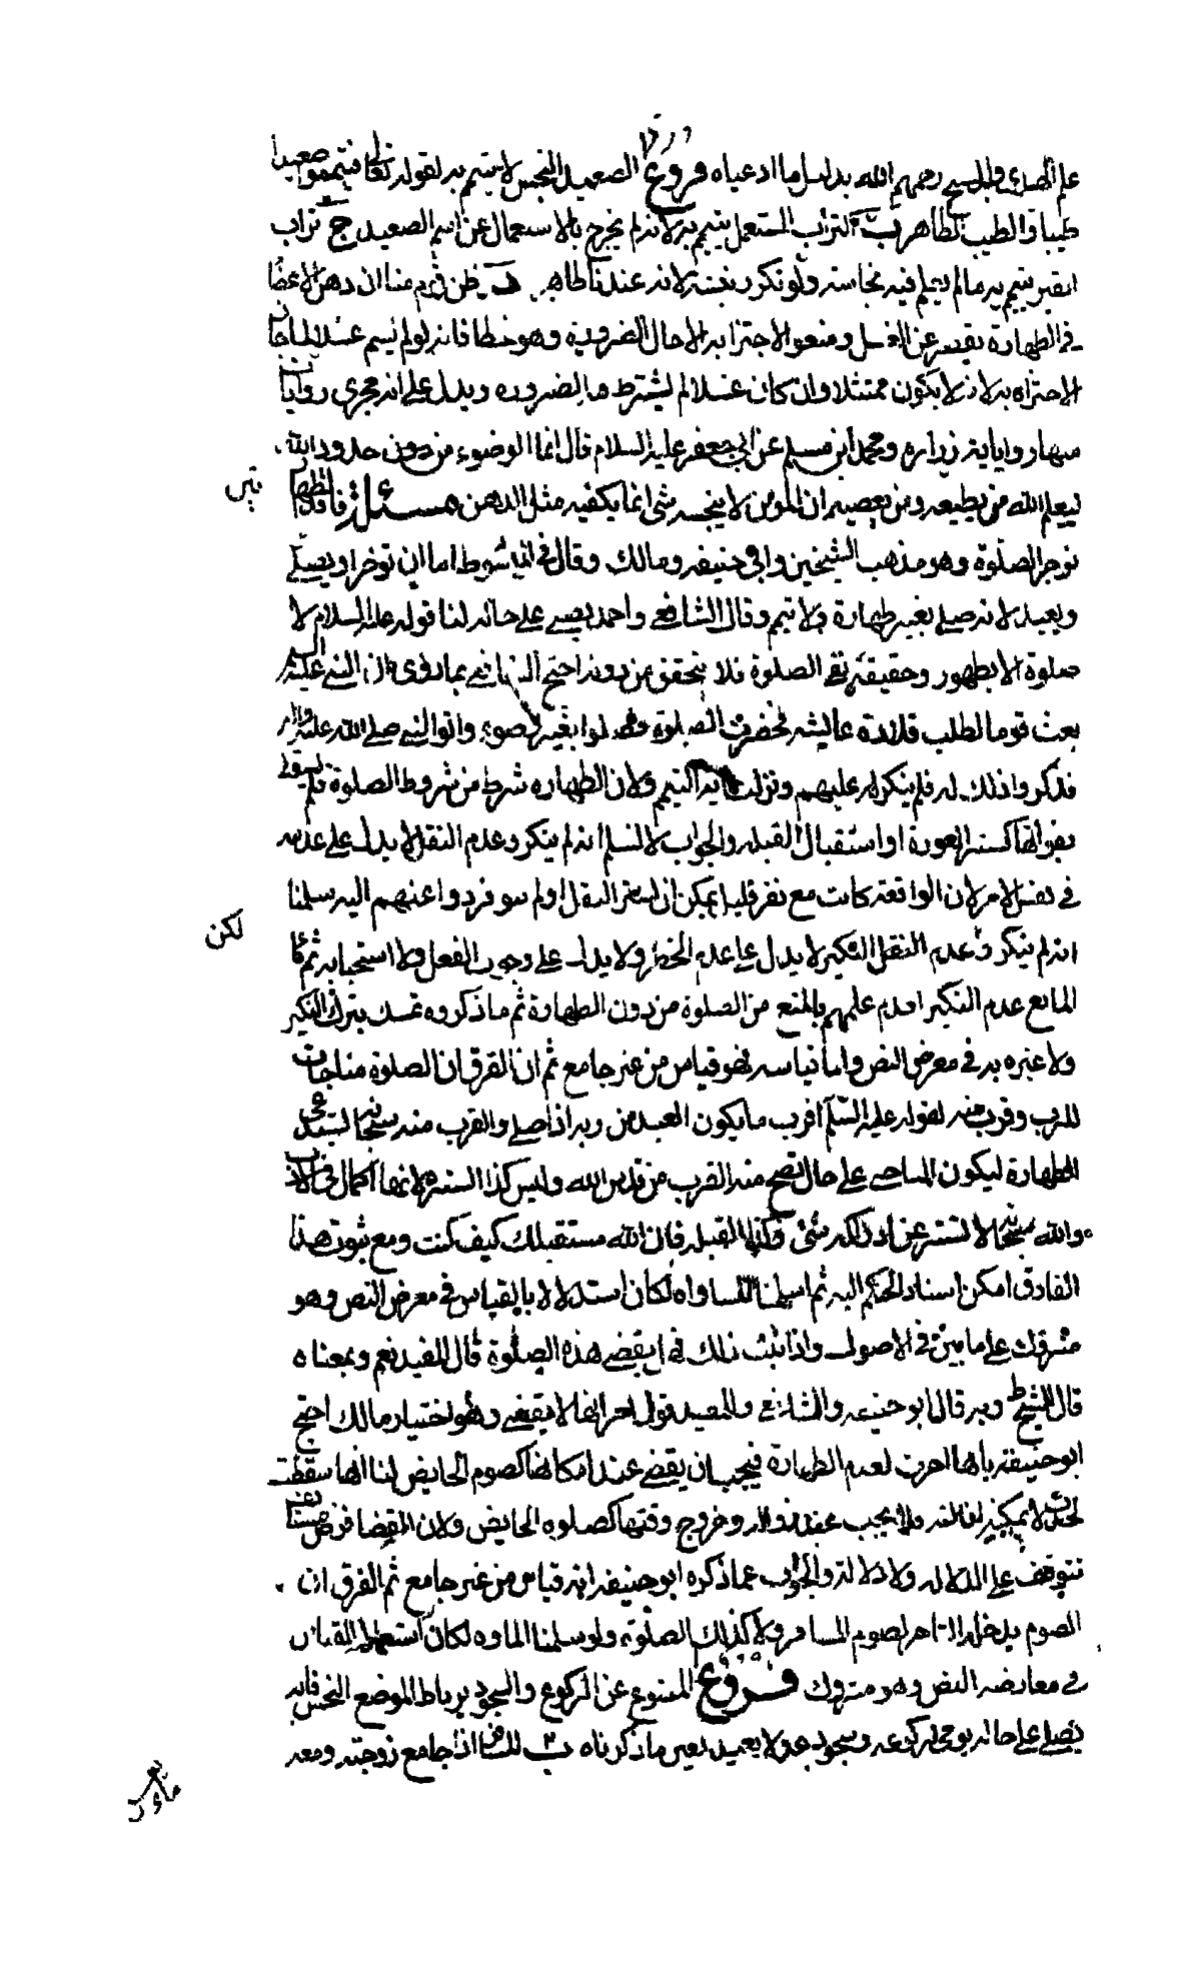 على الصلاة والمسح رحمهم الله بدليل ما ادعياه فروع الصعيد النجس لا يتيمم به لقوله تعالى فتيمموا صعيدا
طيبا والطيب الطاهر ب التراب المستعمل يتيمم به لانه لم يخرج بالاستعمال عن اسم الصعيد ج تراب
القبر يتيمم به ما لم يعلم فيه نجاسته ولو تكرر نبشه لانه عندنا طاهر د ظن قوم منا ان دهن الاعضا
في الطهارة يقصر عن الغسل ومنعوا الاجتزا به الا حال الضرورة وهو خطا فانه لو لم يسم غسلا لما جاز
الاجتزاء به لانه لا يكون ممتثلا وان كان غسلا لم يشترط فيه الضروره ويدل على انه مجزي روايات
منها رواية زراره ومحمد ابن مسلم عن ابي جعفر عليه السلام قال انما الوضوء من حدود الله
ليعلم الله من يطيعه ومن يعصيه وان المؤمن لا ينجسه شئ انما يكفيه مثل الدهن مسئلة فاقد الطهارتين
يؤخر الصلوة وهو مذهب الشيخين وابي حنيفه ومالك وقال في المبسوط اما ان توخر او يصلي
ويعيد لانه صلى بغير طهارة ولا تيمم وقال الشافعي واحمد يصلي على حاله لنا قوله عليه السلام لا
صلوة الا بطهور وحقيقته نفي الصلوة فلا يتحقق من دونه احتج الشافعي بما روى ان النبي عليه السلم
بعث قوما لطلب قلادة عايشه فحضرت الصلوة فصلوا بغير وضوء واتوا النبي صلى الله عليه واله
فذكروا ذلك له فلم ينكر له عليهم ونزلت اية التيمم ولان الطهاره شرط من شروط الصلوة فلم تسقط
بفواتها كستر العورة او استقبال القبله والجواب لا نسلم انه لم ينكر وعدم النقل لا يدل على عدمه
في نفس الامر لان الواقعة كانت مع نفر قليل يمكن ان النقل او لم يتوفر دواعيهم اليه سلمنا
انه لم ينكر وعدم النكير لا يدل على عدم الخطر ولا يدل على وجوب الفعل ولا استحبابه ثم لكن
المانع عدم النكير لعدم علمهم بالمنع من الصلوة من دون الطهارة ثم ما ذكروه تمسك بترك النكير
ولا عبره به في معرض النص واما قياسه فهو قياس من غير جامع ثم ان الفرق ان الصلوة مناجات
للرب وقرب منه لقوله عليه السلم اقرب ما يكون العبد من ربه اذا صلى والقرب منه سبحانه يستدعى
الطهارة ليكون المناجي على حال يصح منه القرب من قدس الله وليس كذا الستره لانها اكمال في الادب
والله سبحانه لا تستتر عن ادراكه شئ وكذا القبله فان الله مستقبلك كيف كنت ومع ثبوت هذا
الفارق امكن اسناد الحكم اليه ثم لو سلمنا المساواه لكان استدلالا بالقياس في معرض النص وهو
متروك على ما بين في الاصول واذا ثبت ذلك فهل يقضي هذه الصلوة قال المفيد نعم وبمعناه
قال الشيخ وبه قال ابو حنيفه والشافعي وللمفيد قول اخر انها لا يقضي وهو اختيار مالك احتج
ابو حنيفة بانها اخرت لعدم الطهارة فيجب ان يقضي عند امكانها كصوم الحايض لنا انها سقطت
لحدث لا يمكنه ازالته فلا يجب عند زواله وخروج وقتها كصلوه الحايض ولان القضا فرض مستانف
يتوقف على الدلاله ولا دلالة والجواب عما ذكره ابو حنيفه انه قياس من غير جامع ثم الفرق ان
الصوم يدخله التاخير لصوم المسافر ولا كذلك الصلوة ولو سلمنا المساوه لكان استعمال القياس
في معارضه النص وهو متروك فروع الممنوع عن الركوع والسجود برباط الموضع النجس فانه
يصلي على حاله يومي لركوعه وسجوده ولا يعيد بعين ما ذكرناه ب المسافر اذا جامع زوجته ومعه